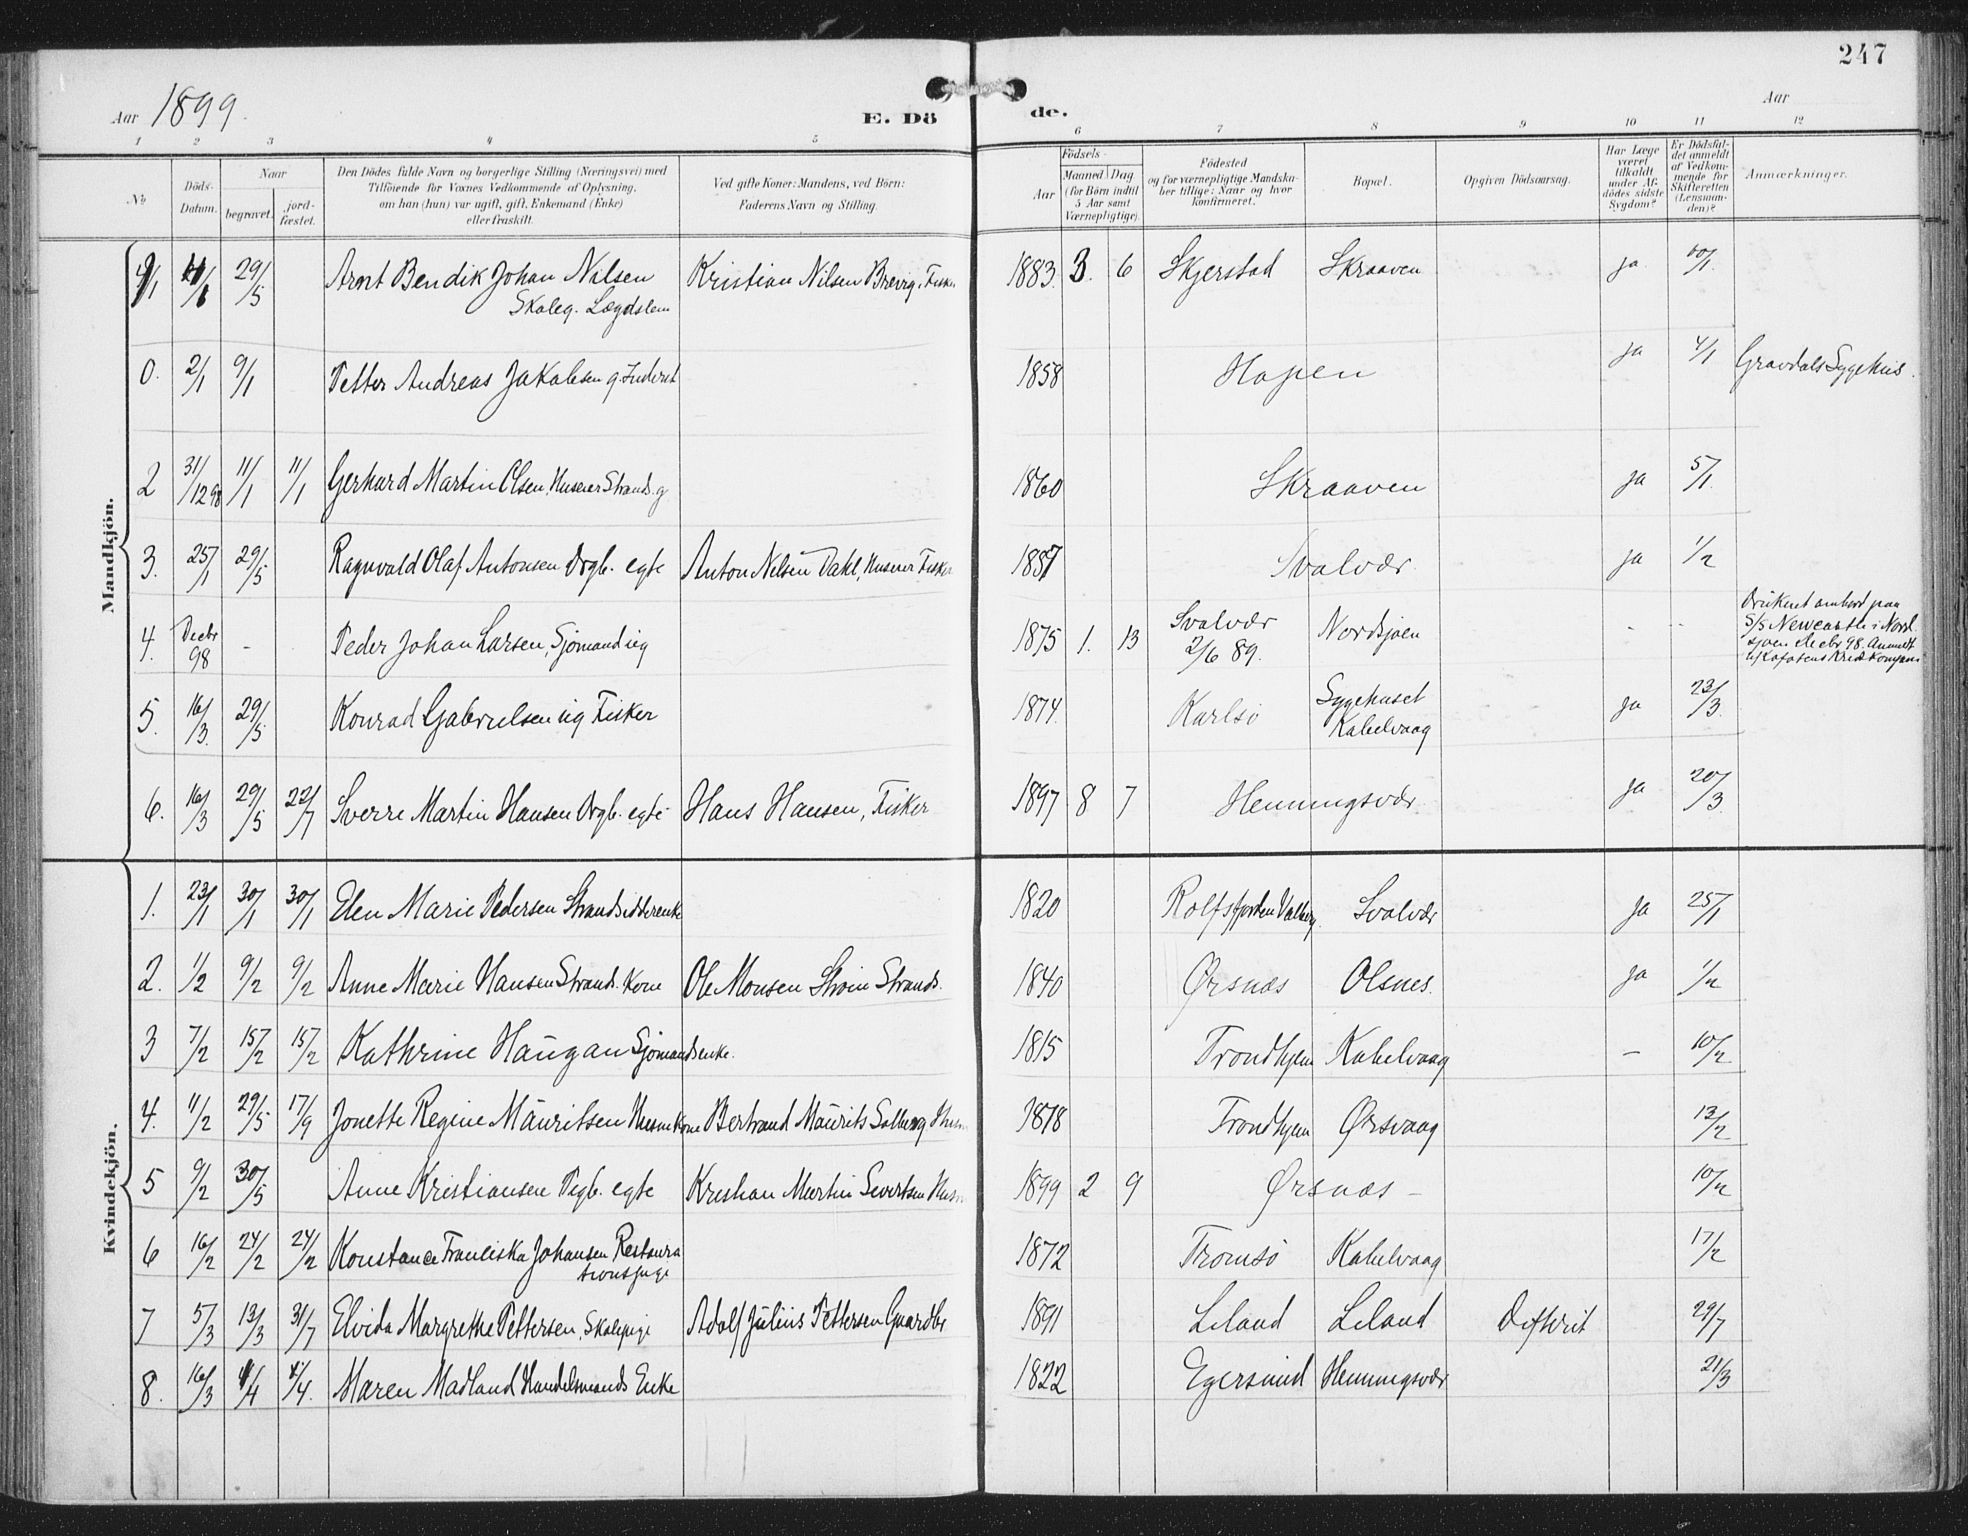 247
Aar 1899.
E. Dö de.
Aar
1 2 3 4 5 6 7 8 9 10 11 12
No
Döds-Datum.
Naar
begravet.
jord-fæstet.
Den Dödes fulde Navn og borgerlige Stilling (Næringsvei) med
Tilföiende for Voxnes Vedkommende af Oplysning,
om han (hun) var ugift, gift, Enkemand (Enke)
eller fraskilt.
Ved gifte Koner: Mandens, ved Börn:
Faderens Navn og Stilling.
Födsels-
Aar
Maaned Dag
(for Börn indtil
5 Aar samt
Værnepligtige).
Födested
og for værnepligtige Mandska-
ber tillige: Naar og hvor
konfirmeret.
Bopæl.
Opgiven Dödsaarsag.
Har Læge
været
tilkaldt
under Af-
dödes sidste
Sygdom?
Er Dödsfal-
det anmeldt
af Vedkom-
mende for
Skifteretten
(Lensman-
den)?
Anmærkninger.
Mandkjön.
29/5 Arnt Bendik Johan Nilsen Kristian Nilsen Brevig, Fisker 1883 3. 6 Skjerstad Skraaven ja
Skoleg. Lægdslem
0. 2/1 9/1 Petter Andreas Jakobsen g. Inderst 1858 Hopen ja 4/1 Gravdals Sygehus.
2 31/12 98 11/1 11/1 Gerhard Martin Olsen, Huseier Strands. g 1860 Skraaven ja 5/1
3. 25/1 29/5 Ragnvald Olaf Antonsen Drgb. egte Anton Nilsen Dahl, Huseier Fisker Svolvær ja 1/2
4. Decbr 98 - Peder Johan Larsen, Sjömand ug 1875 1. 13 Svolvær 2/6 89. Nordsjöen - -
Druknet ombord paa
S/S Newcastle i Nord
sjöen Decbr 98. Anmeldt
5. 16/3 29/5 Konrad Gabrielsen ug Fisker 1874. Karlsö Sygehuset Kabelvaag ja 23/3
6. 16/3 29/5 22/7 Sverre Martin Hansen Drgb. egte Hans Hansen, Fisker 1897 8 7 Henningsvær ja 20/3
Kvindekjön.
1. 23/1 30/1 30/1 Elen Marie Pedersen Strandsidderenke 1820 Rolfsfjorden Valberg. Svolvær ja 25/1
2. 1/2 9/2 9/2 Anne Marie Hansen Strands. kone Ole Monsen Strands. 1840 Ørsnæs Olsnes. ja 1/2
3 7/2 15/2 15/2 Kathrine Haugan Sjömandsenke. 1815 Trondhjem Kabelvaag - 10/2
4. 11/2 29/5 17/9 Jonette Regine Mauritsen Husm. kone Bertrand Maurits Solberg Husm Trondhjem Ørsvaag 13/2
5 9/2 30/5 Anne Kristiansen Pigb. egte Kristian Martin Sivertsen Husm 1899 2 9 Ørsnæs - 10/2
6 16/2 24/2 24/2 Konstance Franciska Johansen Restaura 1872 Tromsö Kabelvaag 17/2
tionspige
7 5/3 13/3 31/7 Elvida Margrethe Pettersen, Skolepige Adolf Julius Pettersen Gaardbr 1891 Liland Liland Difterit 29/7
8. 16/3 4/4 4/4. Maren Madland Handelsmands Enke 1822 Egersund Henningsvær 21/3